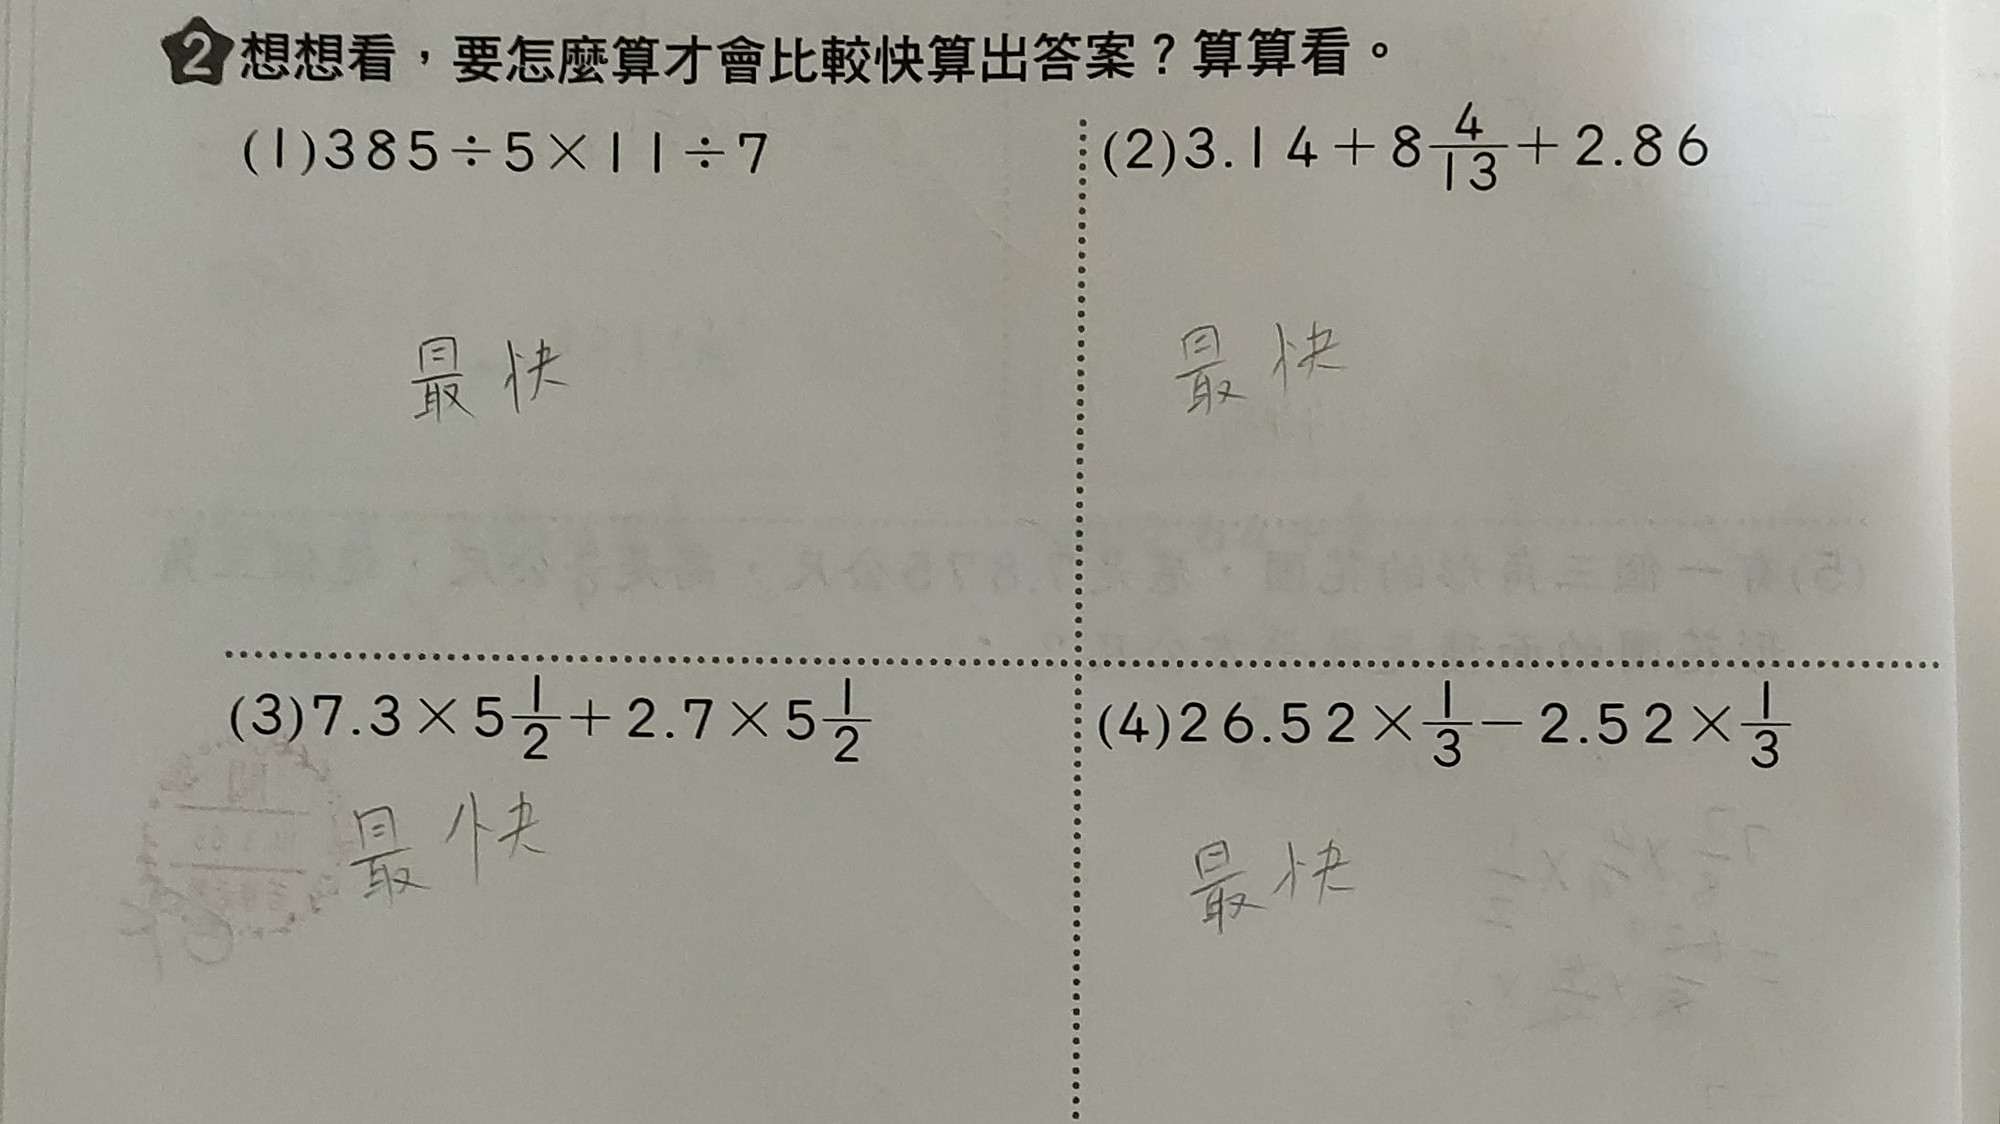 2 想想看，要怎麼算才會比較快算出答案？算算看。
(1)385÷5×11÷7
(2)3.14+8 4/13+2.86
最快
最快
(3)7.3×5 1/2+2.7×5 1/2
(4)26.52×1/3−2.52×1/3
最快
最快